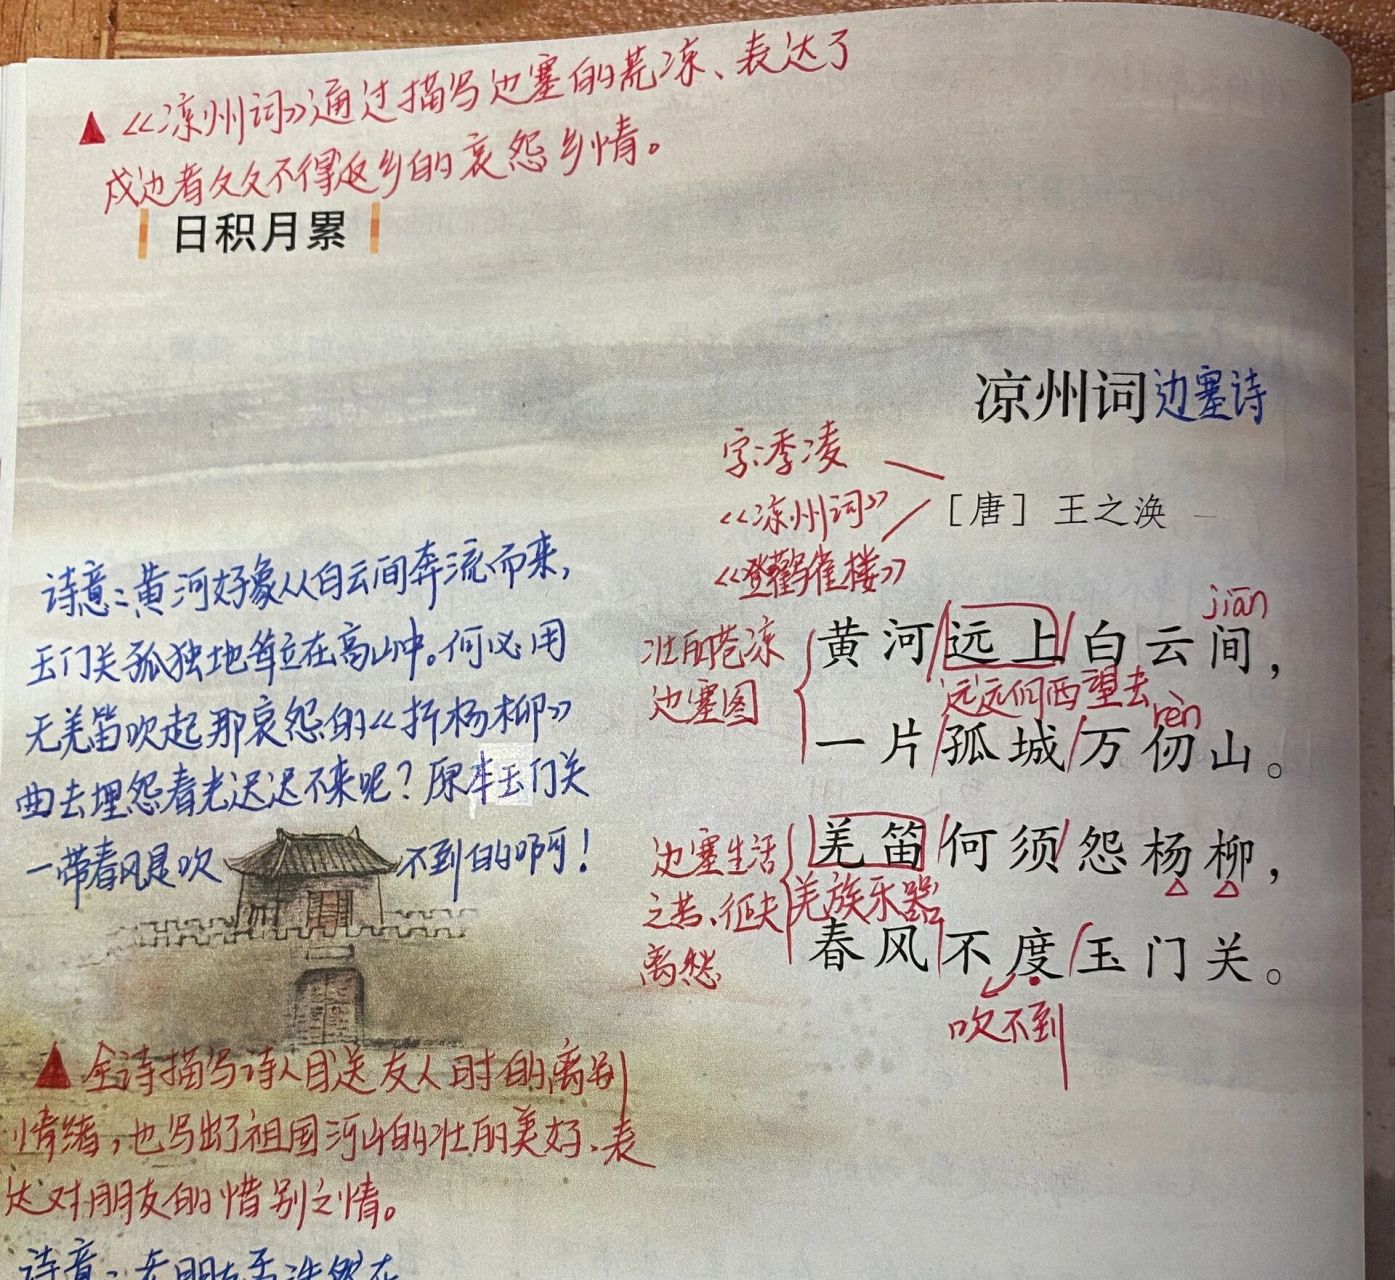 ▲《凉州词》通过描写边塞的荒凉、表达了
戍边者久久不得返乡的哀怨乡情。
日积月累
凉州词 边塞诗
字:季凌
《凉州词》
[唐] 王之涣
《登鹳雀楼》
诗意:黄河好象从白云间奔流而来,
玉门关孤独地耸立在高山中。何必用
无羌笛吹起那哀怨的《折杨柳》
曲去埋怨春光迟迟不来呢?原来玉门关
一带春风是吹不到的啊!
jiān
壮阔苍凉
边塞图
黄河远上白云间,
远远向西望去
rèn
一片孤城万仞山。
边塞生活
之苦、征夫
离愁
羌笛何须怨杨柳,
羌族乐器
春风不度玉门关。
吹不到
▲全诗描写诗人目送友人时的离别
情绪,也写出了祖国河山的壮丽美好、表
达对朋友的惜别之情。
诗意:在朋友孟浩然在